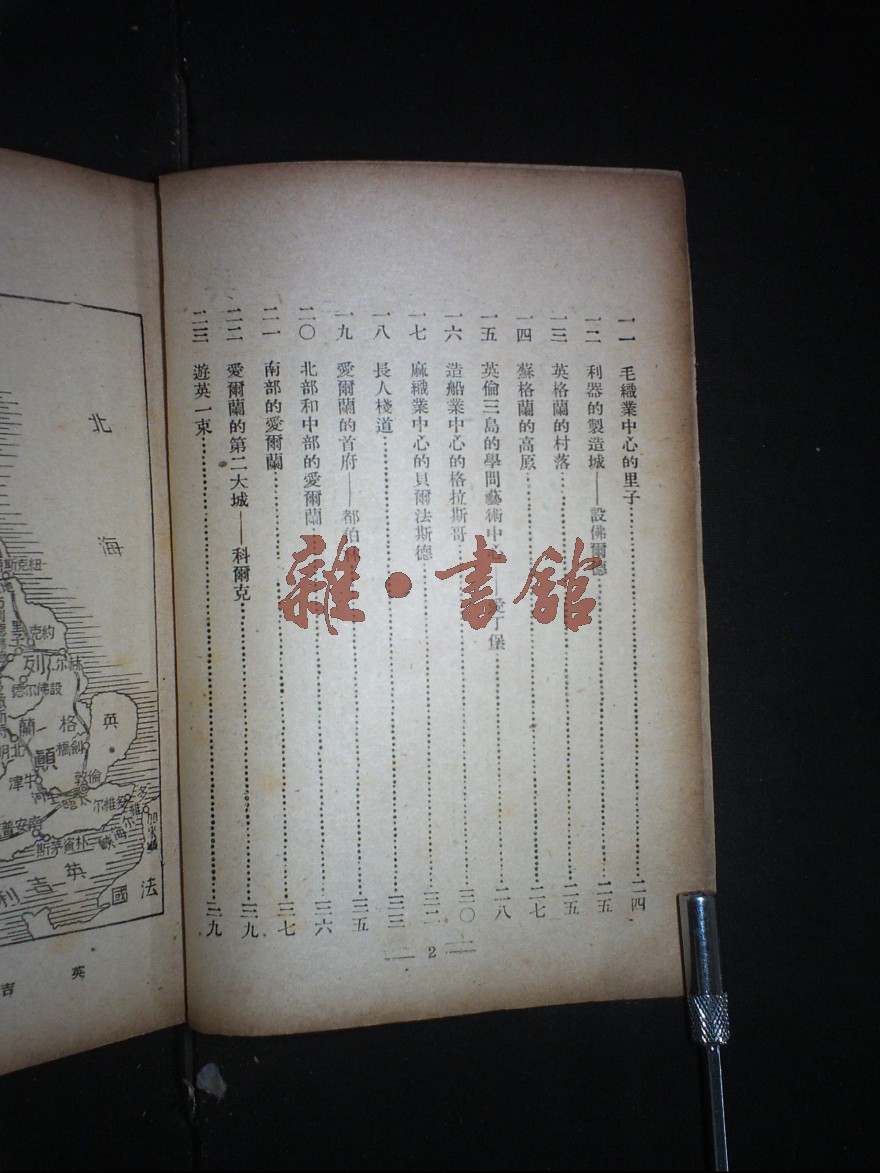 一一 毛織業中心的里子 二四
一二 利器的製造城——設佛爾德 二五
一三 英格蘭的村落 二五
一四 蘇格蘭的高原 二七
一五 英倫三島的學問藝術中心——愛丁堡 二八
一六 造船業中心的格拉斯哥 三〇
一七 麻織業中心的貝爾法斯德 三二
一八 長人棧道 三三
一九 愛爾蘭的首府——都伯 三五
二〇 北部和中部的愛爾蘭 三六
二一 南部的愛爾蘭 三七
二二 愛爾蘭的第二大城——科爾克 三九
二三 遊英一束 三九
2
雜·書館
北海
約克
里子
設佛尔德
英格蘭
劍橋
牛津
倫敦
朴資茅斯
法國
英吉利
英
吉